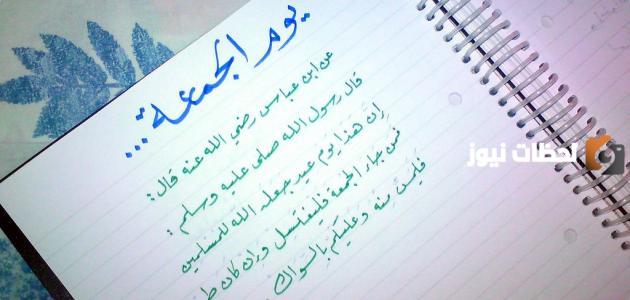 يوم الجمعة...
عن ابن عباس رضي الله عنه قال :
قال رسول الله صلى عليه وسلم :
إن هذا يوم عيد جعله الله للمسلمين
فمن جاء الجمعة فليغتسل وإن كان ط
فليمس منه وعليكم بالسواك
لحظات نيوز